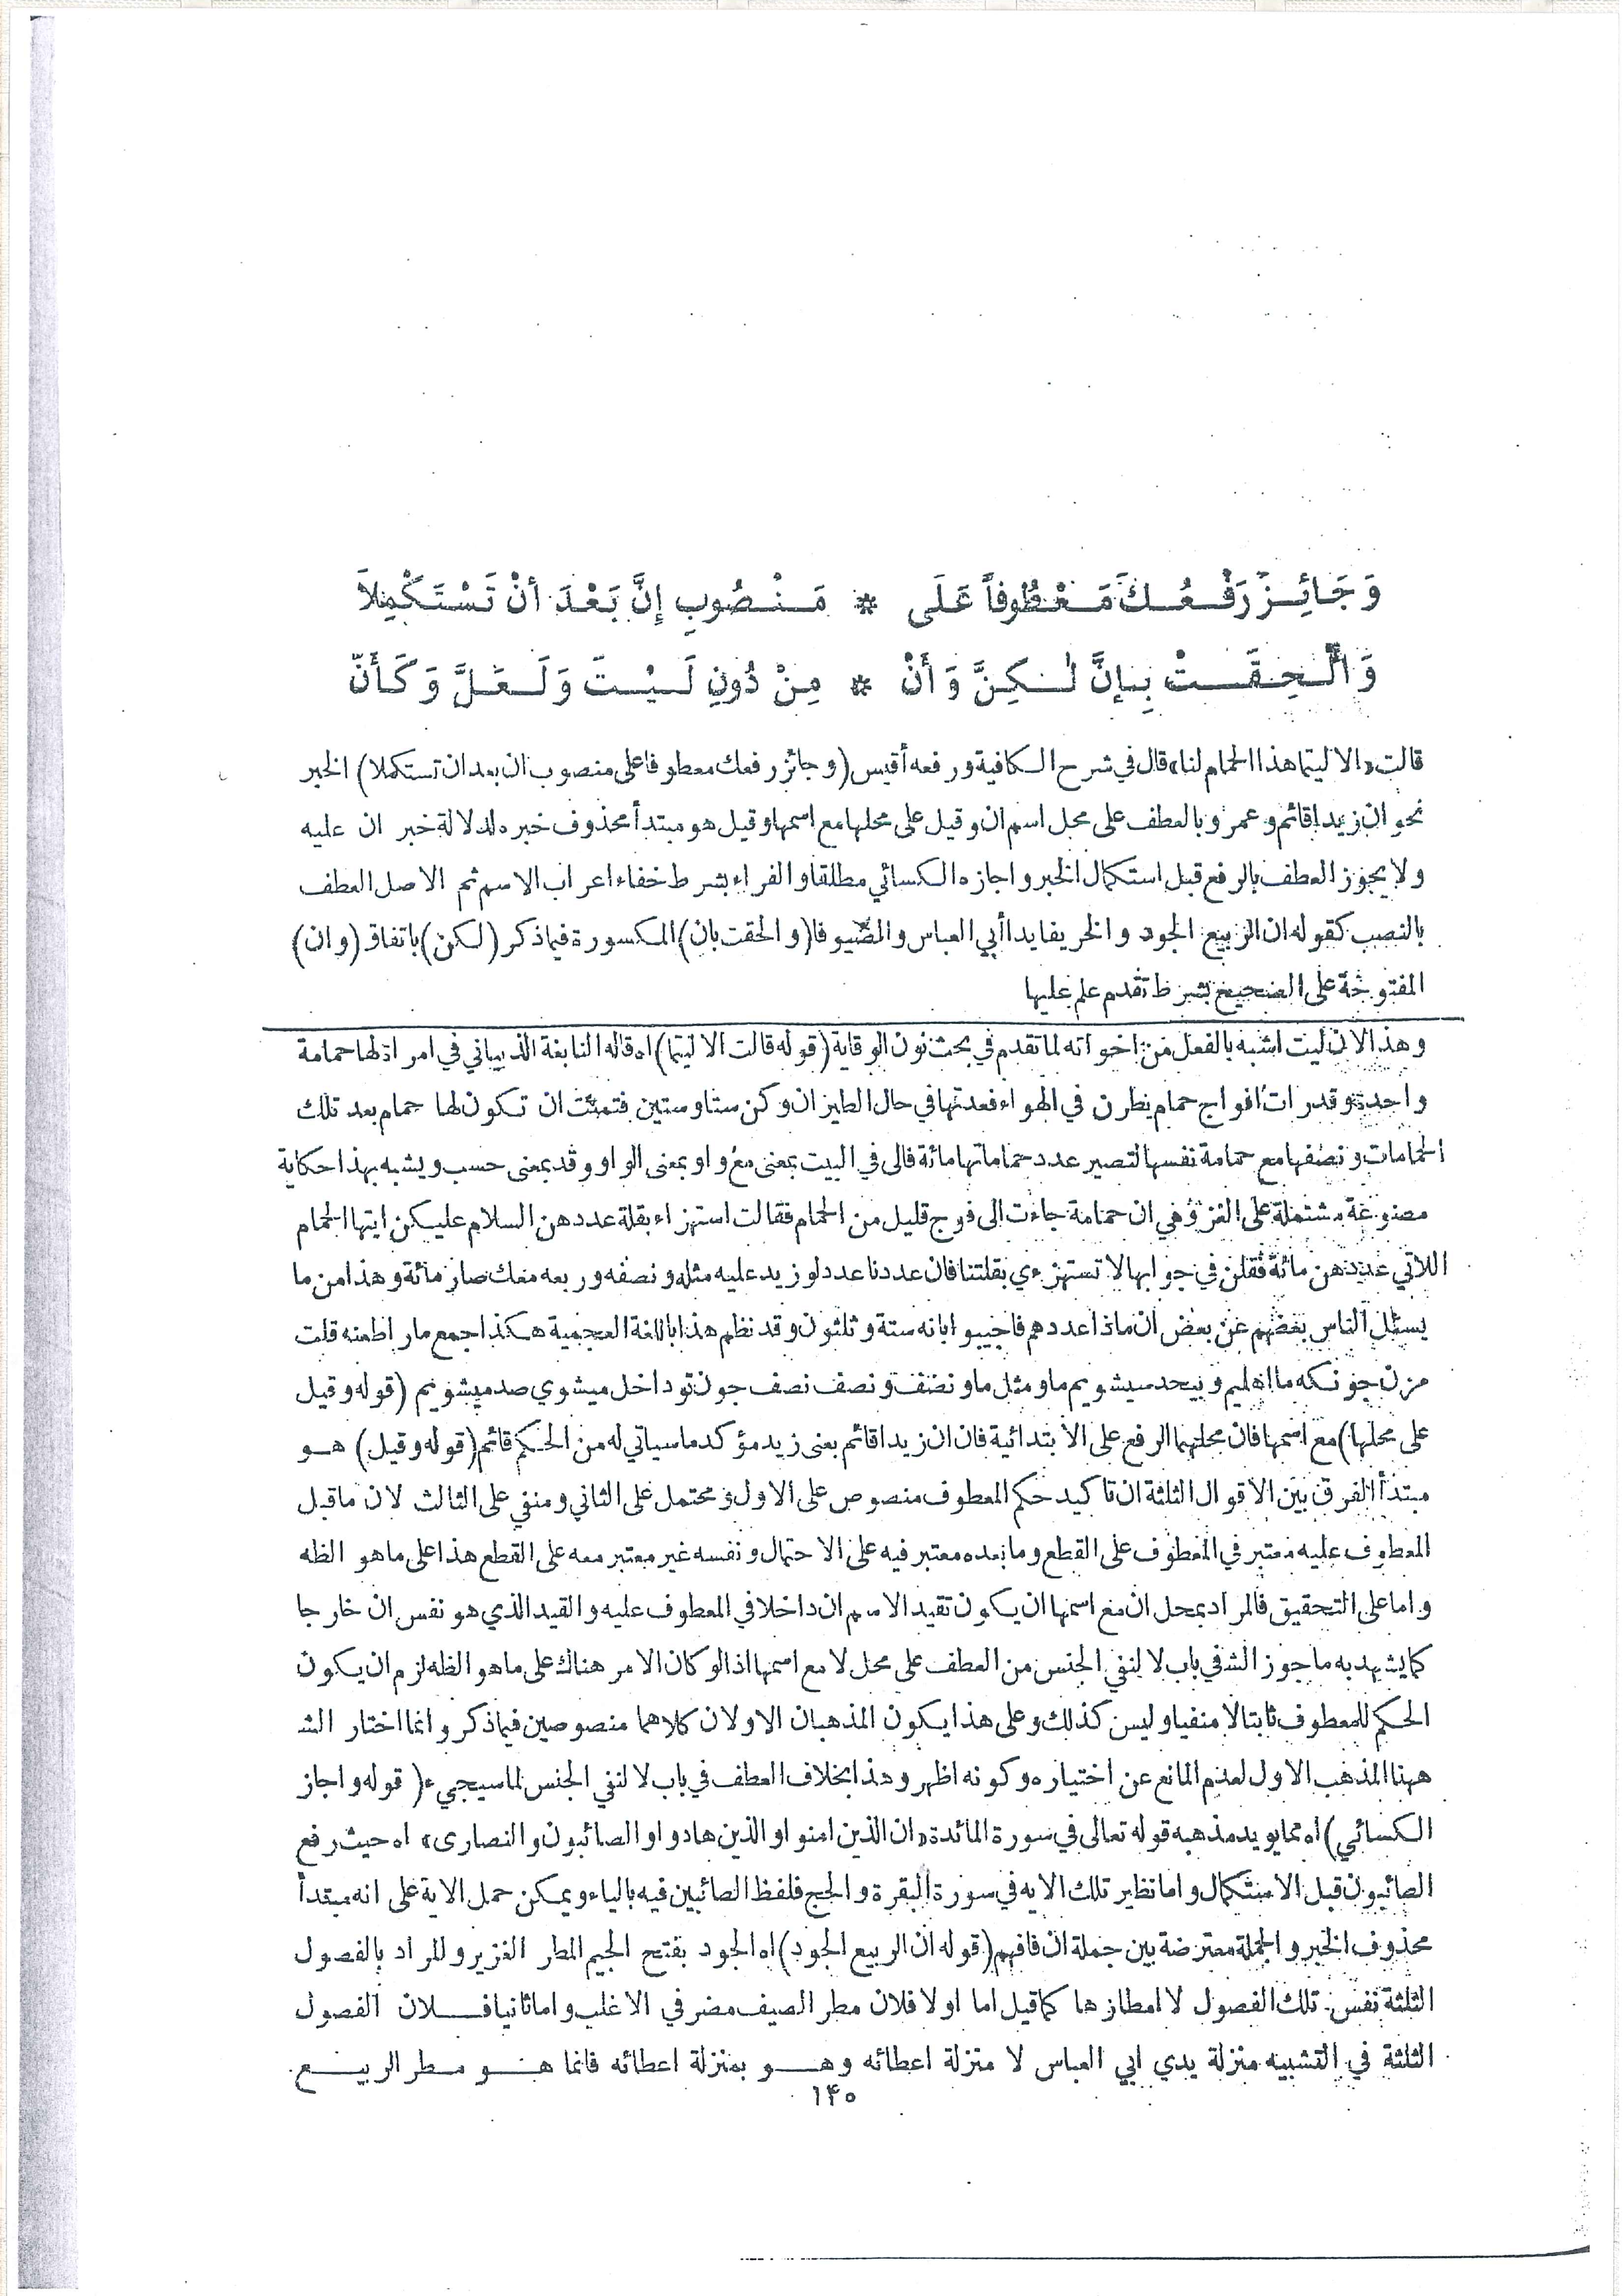 وَجَائِزٌ رَفْعُكَ مَعْطُوفاً عَلَى * مَنْصُوبِ إِنَّ بَعْدَ أَنْ تَسْتَكْمِلاَ
وَأُلْحِقَتْ بِإِنَّ لٰكِنَّ وَأَنْ * مِنْ دُونِ لَيْتَ وَلَعَلَّ وَكَأَنّ
قالت «الا ليتما هذا الحمام لنا» قال في شرح الكافية ورفعه أقيس (وجائز رفعك معطوفا على منصوب ان بعد ان تستكملا) الخبر
نحو ان زيدا قائم وعمرو بالعطف على محل اسم ان وقيل على محلها مع اسمها وقيل هو مبتدأ محذوف خبره لدلالة خبر ان عليه
ولا يجوز العطف بالرفع قبل استكمال الخبر واجازه الكسائي مطلقا والفراء بشرط خفاء اعراب الاسم ثم الاصل العطف
بالنصب كقوله ان الربيع الجود والخريفا يدا أبي العباس والصيوفا (والحقت بان) المكسورة فيما ذكر (لكن) باتفاق (وان)
المفتوحة على الصحيح بشرط تقدم علم عليها
وهذا لان ليت اشبه بالفعل من اخواته لما تقدم في بحث نون الوقاية (قوله قالت الا ليتما) اه قاله النابغة الذبياني في امراة لها حمامة
واحدة وقد رات افواج حمام يطرن في الهواء فعدتها في حال الطيران وكن ستا وستين فتمنت ان تكون لها حمام بعد تلك
الحمامات ونصفها مع حمامة نفسها لتصير عدد حماماتها مائة فالى في البيت بمعنى مع واو بمعنى الواو وقد بمعنى حسب ويشبه بهذا حكاية
مصنوعة مشتملة على اللغز وهي ان حمامة جاءت الى فوج قليل من الحمام فقالت استهزاء بقلة عددهن السلام عليكن ايتها الحمام
اللاتي عددهن مائة فقلن في جوابها لا تستهزءي بقلتنا فان عددنا عدد لو زيد عليه مثله ونصفه وربعه معك صار مائة وهذا من ما
يسئل الناس بعضهم عن بعض ان ماذا عددهم فاجيبوا بانه ستة وثلثون وقد نظم هذا باللغة العجمية هكذا جمع ما را طعنه قلت
مزن جونكه ما اهليم وبيحد ميشويم ما ومثل ما ونصف ونصف نصف جون تو داخل ميشوي صد ميشويم (قوله وقيل
على محلها) مع اسمها فان محلهما الرفع على الابتدائية فان ان زيدا قائم بمعنى زيد مؤكد ما سياتي له من الحكم قائم (قوله وقيل) هو
مبتدأ الفرق بين الاقوال الثلثة ان تاكيد حكم المعطوف منصوص على الاول ومحتمل على الثاني ومنفي على الثالث لان ما قبل
المعطوف عليه معتبر في المعطوف على القطع وما بعده معتبر فيه على الاحتمال ونفسه غير معتبر معه على القطع هذا على ما هو الظه
واما على التحقيق فالمراد بمحل ان مع اسمها ان يكون تقيد الاسم ان داخلا في المعطوف عليه والقيد الذي هو نفس ان خارجا
كما يشهد به ما جوز الشـ في باب لا لنفي الجنس من العطف على محل لا مع اسمها اذ لو كان الامر هناك على ما هو الظه لزم ان يكون
الحكم للمعطوف ثابتا لا منفيا وليس كذلك وعلى هذا يكون المذهبان الاولان كلاهما منصوصين فيما ذكر وانما اختار الشـ
ههنا المذهب الاول لعدم المانع عن اختياره وكونه اظهر وهذا بخلاف العطف في باب لا لنفي الجنس لما سيجيء (قوله واجاز
الكسائي) اه مما يويد مذهبه قوله تعالى في سورة المائدة «ان الذين امنوا والذين هادوا والصائبون والنصارى» اه حيث رفع
الصائبون قبل الاستكمال واما نظير تلك الايه في سورة البقرة والحج فلفظ الصائبين فيه بالياء ويمكن حمل الاية على انه مبتدأ
محذوف الخبر والجملة معترضة بين جملة ان فافهم (قوله ان الربيع الجود) اه الجود بفتح الجيم المطر الغزير والمراد بالفصول
الثلثة نفس تلك الفصول لا امطارها كما قيل اما اولا فلان مطر الصيف مضر في الاغلب واما ثانيا فـــلان الفصول
الثلثة في التشبيه منزلة يدي ابي العباس لا منزلة اعطائه وهــو بمنزلة اعطائه فانما هــو مــطر الربيــع
۱۴۰